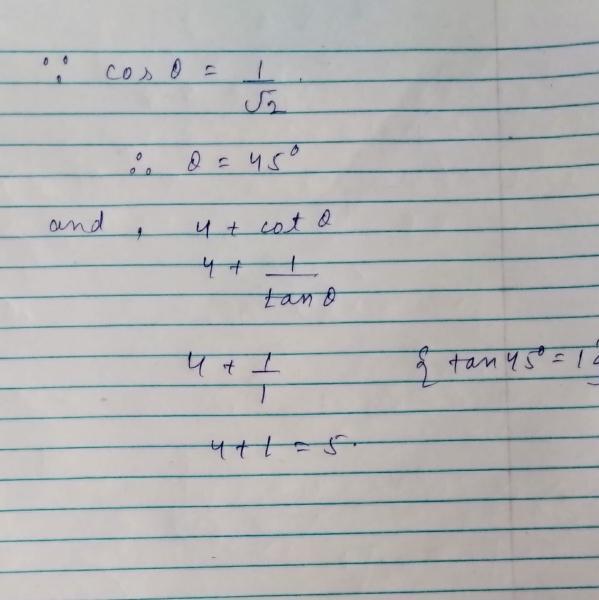 ∵ cos θ = 1/√2.
∴ θ = 45°
and, 4 + cot θ
4 + 1/tan θ
4 + 1/1 { tan 45° = 1 }
4 + 1 = 5.